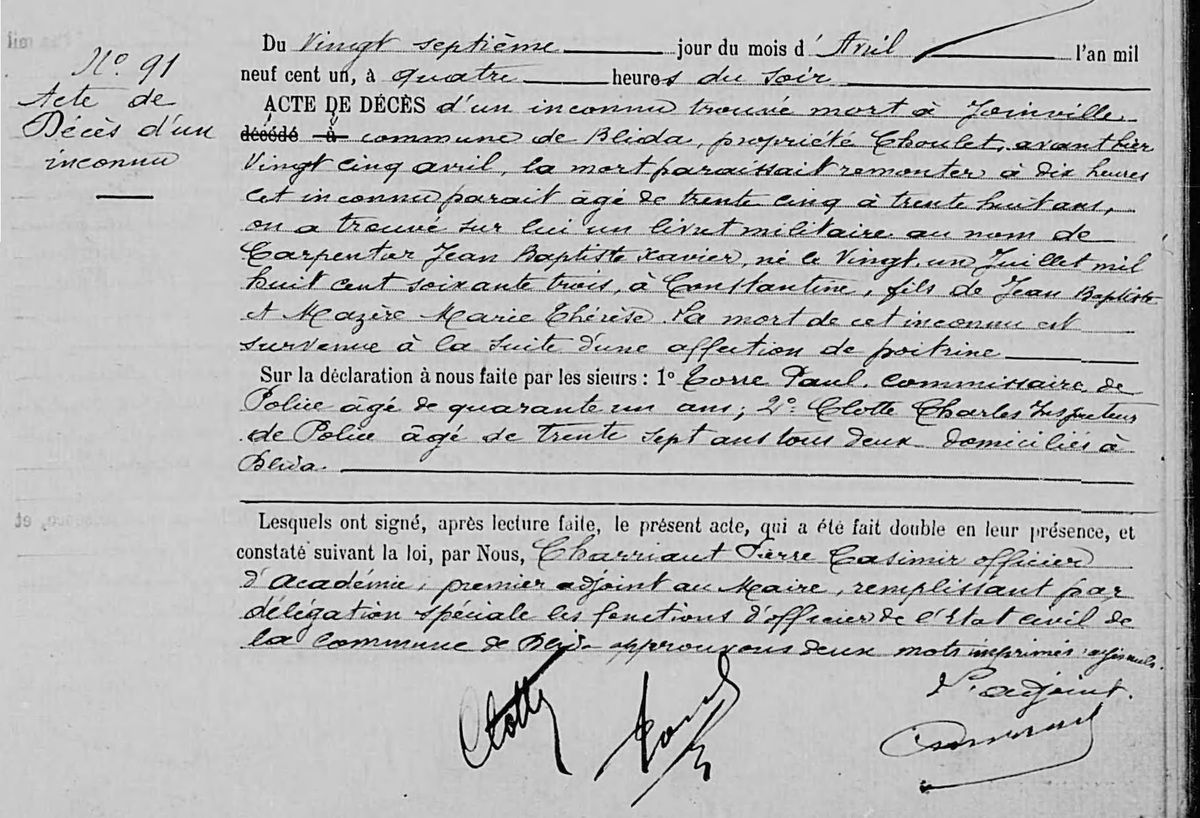 N° 91
Acte de
Décès d'un
inconnu
Du Vingt septième jour du mois d'Avril l'an mil
neuf cent un, à quatre heures du soir
ACTE DE DÉCÈS d'un inconnu trouvé mort à Joinville
décédé à commune de Blida, propriété Choulet, avant hier
Vingt cinq avril, la mort paraissait remonter à dix heures
cet inconnu parait âgé de trente cinq à trente huit ans,
on a trouvé sur lui un livret militaire au nom de
Carpentar Jean Baptiste Xavier, né le Vingt un Juillet mil
huit cent soixante trois, à Constantine, fils de Jean Baptiste
et Mazère Marie Thérèse. La mort de cet inconnu est
survenue à la suite d'une affection de poitrine
Sur la déclaration à nous faite par les sieurs : 1° Corre Paul, commissaire de
Police âgé de quarante un ans, 2° Clotte Charles Inspecteur
de Police âgé de trente sept ans tous deux domiciliés à
Blida.
Lesquels ont signé, après lecture faite, le présent acte, qui a été fait double en leur présence, et
constaté suivant la loi, par Nous, Charruaut Pierre Casimir officier
d'Académie, premier adjoint au Maire, remplissant par
délégation spéciale les fonctions d'officier de l'Etat civil de
la commune de Blida approuvons deux mots imprimés
L'adjoint.
Clotte